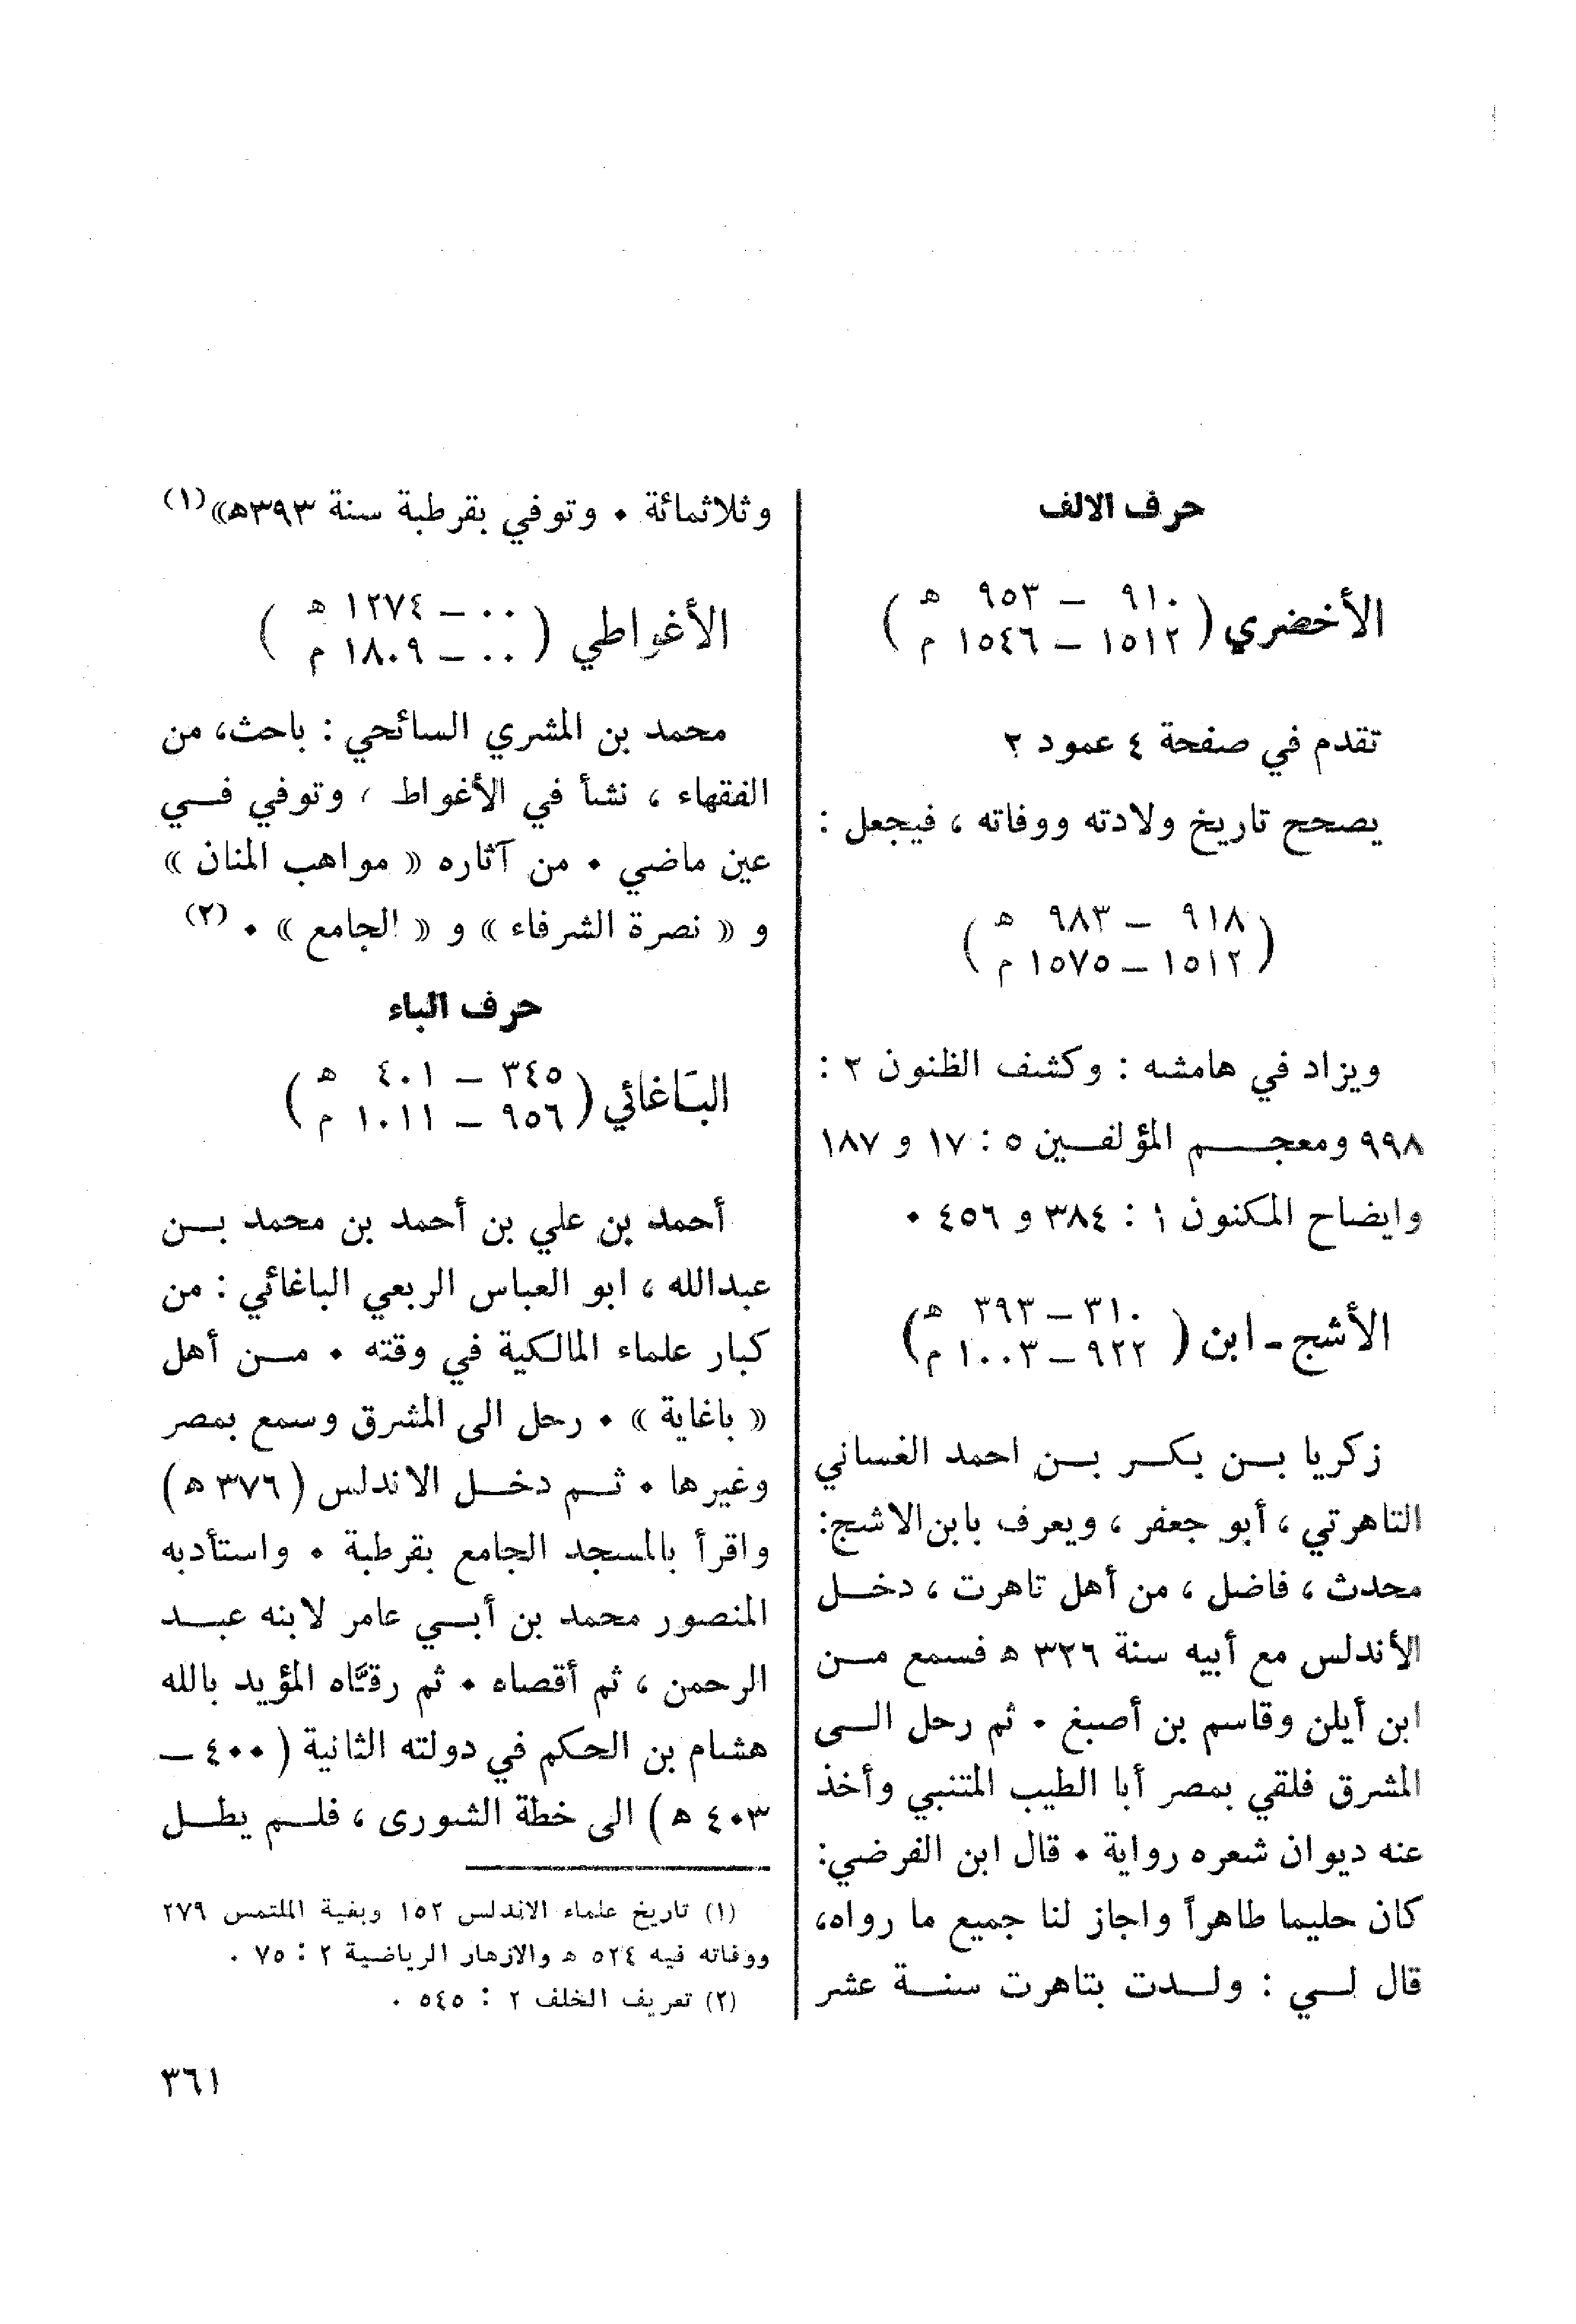 حرف الالف
الأخضري ( ٩١٠ – ٩٥٣ هـ
١٥١٢ – ١٥٤٦ م )
تقدم في صفحة ٤ عمود ٢
يصحح تاريخ ولادته ووفاته ، فيجعل :
( ٩١٨ – ٩٨٣ هـ
١٥١٢ – ١٥٧٥ م )
ويزاد في هامشه : وكشف الظنون ٢ :
٩٩٨ ومعجم المؤلفين ٥ : ١٧ و ١٨٧
وايضاح المكنون ١ : ٣٨٤ و ٤٥٦ ٠
الأشج - ابن ( ٣١٠ – ٣٩٣ هـ
٩٢٢ – ١٠٠٣ م )
زكريا بن بكر بن احمد الغساني
التاهرتي ، أبو جعفر ، ويعرف بابن الاشج:
محدث ، فاضل ، من أهل تاهرت ، دخل
الأندلس مع أبيه سنة ٣٢٦ هـ فسمع من
ابن أيلن وقاسم بن أصبغ ٠ ثم رحل الى
المشرق فلقي بمصر أبا الطيب المتنبي وأخذ
عنه ديوان شعره رواية ٠ قال ابن الفرضي:
كان حليما طاهراً واجاز لنا جميع ما رواه،
قال لي : ولدت بتاهرت سنة عشر
وثلاثمائة ٠ وتوفي بقرطبة سنة ٣٩٣هـ» (١)
الأغواطي ( ٠٠ – ١٢٧٤ هـ
٠٠ – ١٨٠٩ م )
محمد بن المشري السائحي : باحث، من
الفقهاء ، نشأ في الأغواط ، وتوفي في
عين ماضي ٠ من آثاره « مواهب المنان »
و « نصرة الشرفاء » و « الجامع » ٠ (٢)
حرف الباء
البَاغائي ( ٣٤٥ – ٤٠١ هـ
٩٥٦ – ١٠١١ م )
أحمد بن علي بن أحمد بن محمد بن
عبدالله ، ابو العباس الربعي الباغائي : من
كبار علماء المالكية في وقته ٠ من أهل
« باغاية » ٠ رحل الى المشرق وسمع بمصر
وغيرها ٠ ثم دخل الاندلس ( ٣٧٦ هـ )
واقرأ بالمسجد الجامع بقرطبة ٠ واستأدبه
المنصور محمد بن أبي عامر لابنه عبد
الرحمن ، ثم أقصاه ٠ ثم رقّاه المؤيد بالله
هشام بن الحكم في دولته الثانية ( ٤٠٠ –
٤٠٣ هـ ) الى خطة الشورى ، فلم يطل
(١) تاريخ علماء الاندلس ١٥٢ وبغية الملتمس ٢٧٩
ووفاته فيه ٥٢٤ هـ والازهار الرياضية ٢ : ٧٥ .
(٢) تعريف الخلف ٢ : ٥٤٥ .
٣٦١